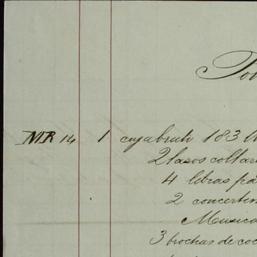 MR 14 1 caja bruto 183 k
2 lazos collar
4 libras pa
2 concertin
Musica
3 brochas de coc